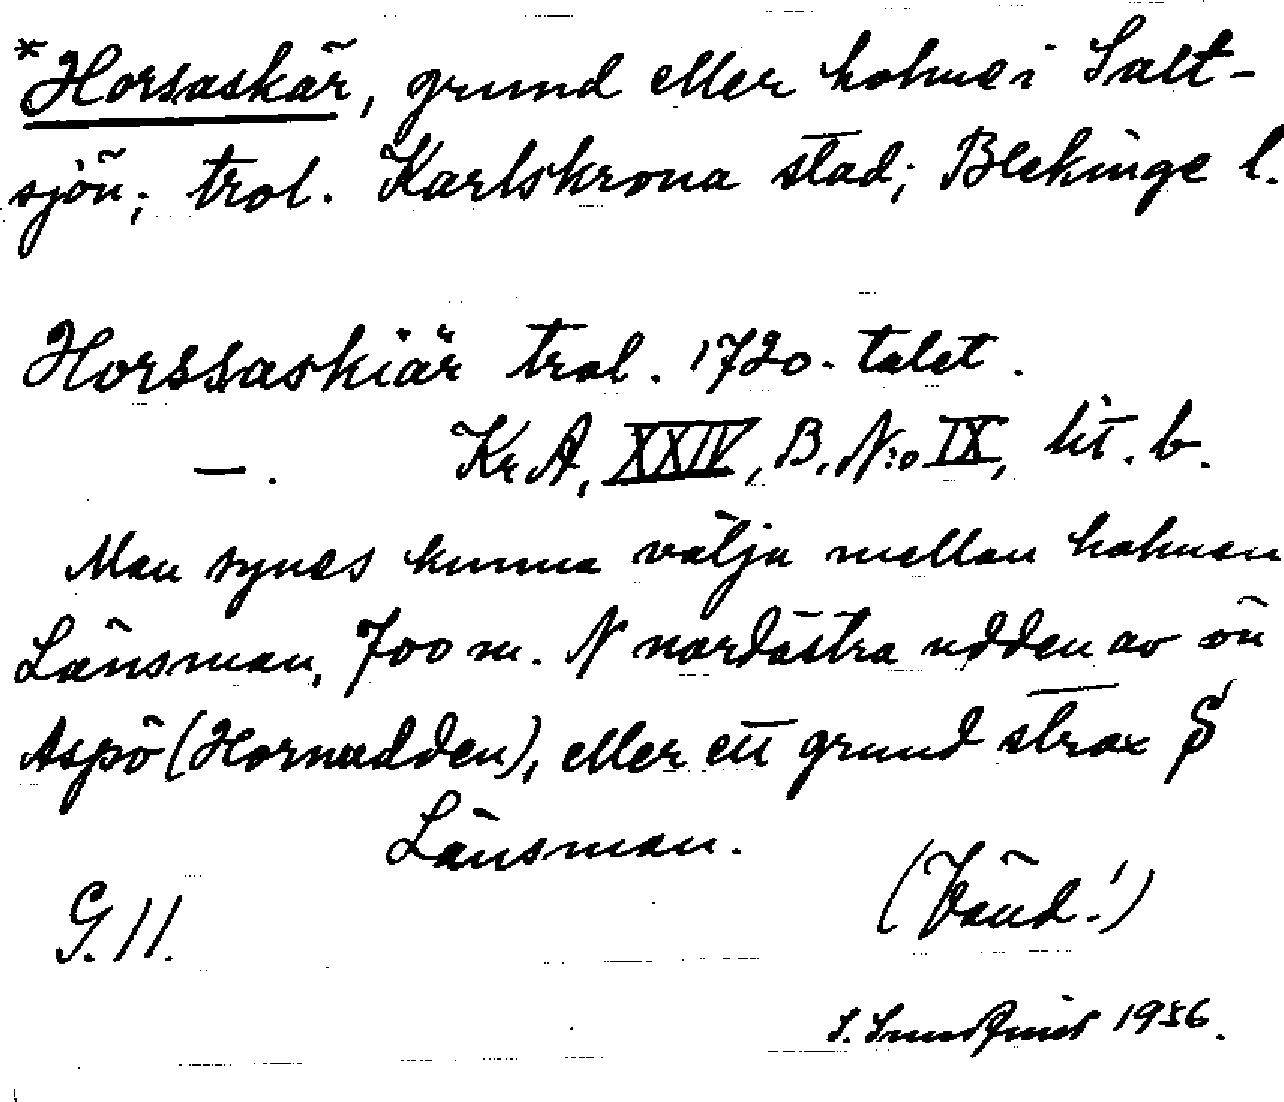 *Horsaskär, grund eller holme i Salt-
sjön; trol. Karlskrona stad; Blekinge l.
Horssaskiär trol. 1720-talet.
—. KrA, XXIV, B. N:o IX, lit. b.
Man synes kunna välja mellan holmen
Länsman, 700 m. N nordöstra udden av ön
Aspö (Hornudden), eller ett grund strax S
Länsman.
(Vänd!)
G. 11.
S. 1956.